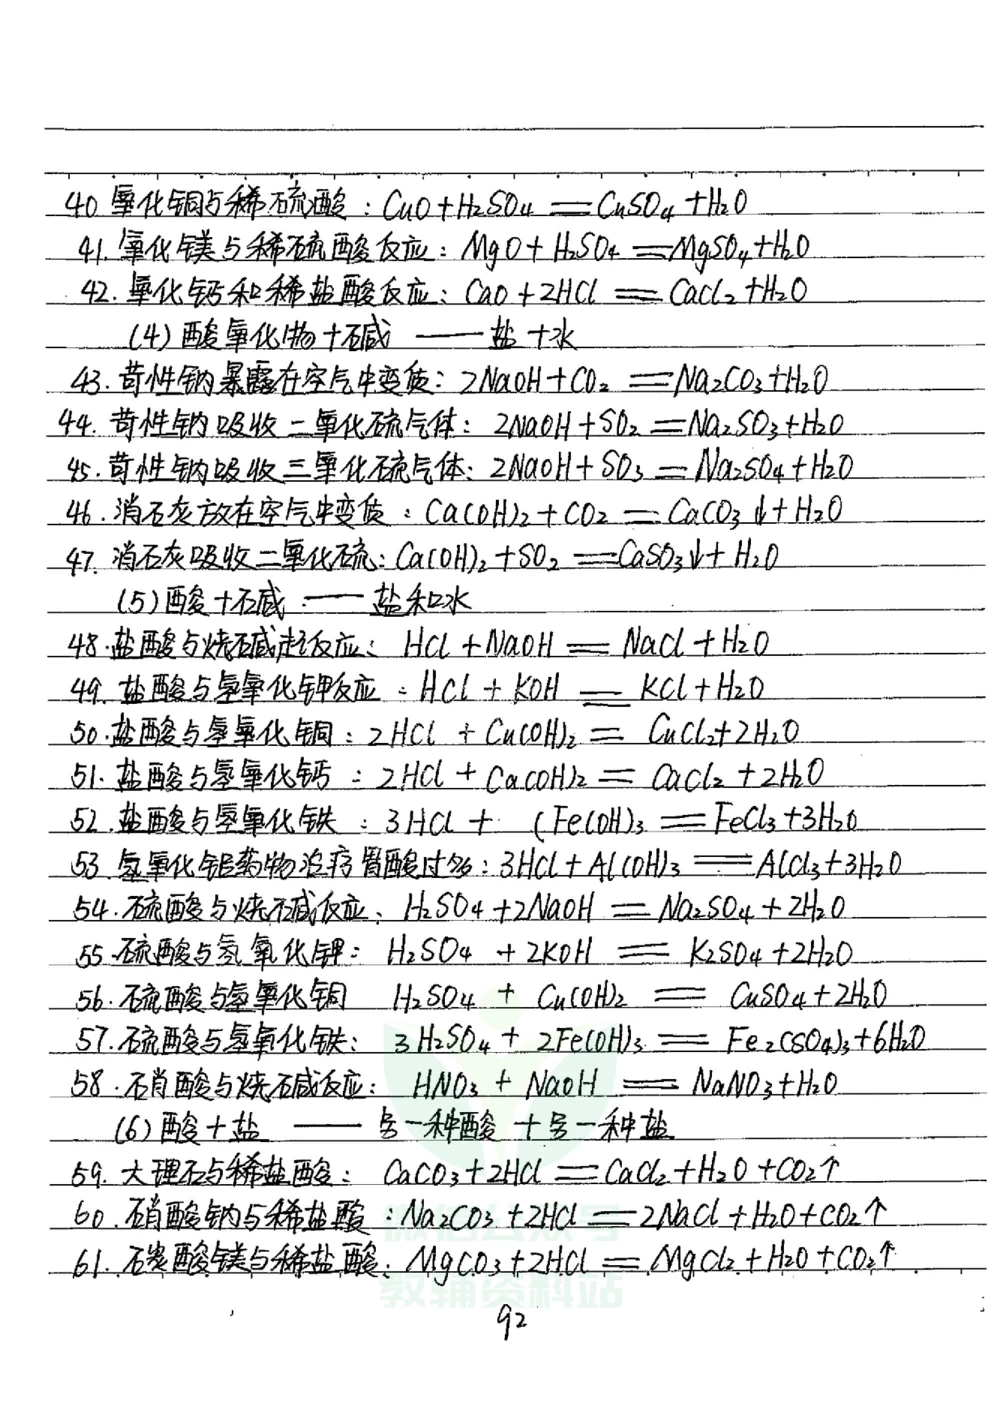 40. 氧化铜与稀硫酸：CuO+H₂SO₄══CuSO₄+H₂O
41. 氧化镁与稀硫酸反应：MgO+H₂SO₄══MgSO₄+H₂O
42. 氧化钙和稀盐酸反应：CaO+2HCl══CaCl₂+H₂O
(4)酸氧化物+碱 —— 盐+水
43. 苛性钠暴露在空气中变质：2NaOH+CO₂══Na₂CO₃+H₂O
44. 苛性钠吸收二氧化硫气体：2NaOH+SO₂══Na₂SO₃+H₂O
45. 苛性钠吸收三氧化硫气体：2NaOH+SO₃══Na₂SO₄+H₂O
46. 消石灰放在空气中变质：Ca(OH)₂+CO₂══CaCO₃↓+H₂O
47. 消石灰吸收二氧化硫：Ca(OH)₂+SO₂══CaSO₃↓+H₂O
(5)酸+碱 —— 盐和水
48. 盐酸与烧碱起反应：HCl+NaOH══NaCl+H₂O
49. 盐酸与氢氧化钾反应：HCl+KOH══KCl+H₂O
50. 盐酸与氢氧化铜：2HCl+Cu(OH)₂══CuCl₂+2H₂O
51. 盐酸与氢氧化钙：2HCl+Ca(OH)₂══CaCl₂+2H₂O
52. 盐酸与氢氧化铁：3HCl+ (Fe(OH)₃══FeCl₃+3H₂O
53. 氢氧化铝药物治疗胃酸过多：3HCl+Al(OH)₃══AlCl₃+3H₂O
54. 硫酸与烧碱反应：H₂SO₄+2NaOH══Na₂SO₄+2H₂O
55. 硫酸与氢氧化钾：H₂SO₄+2KOH══K₂SO₄+2H₂O
56. 硫酸与氢氧化铜 H₂SO₄+Cu(OH)₂══CuSO₄+2H₂O
57. 硫酸与氢氧化铁：3H₂SO₄+2Fe(OH)₃══Fe₂(SO₄)₃+6H₂O
58. 硝酸与烧碱反应：HNO₃+NaOH══NaNO₃+H₂O
(6)酸+盐 —— 另一种酸+另一种盐
59. 大理石与稀盐酸：CaCO₃+2HCl══CaCl₂+H₂O+CO₂↑
60. 硝酸钠与稀盐酸：Na₂CO₃+2HCl══2NaCl+H₂O+CO₂↑
微信公众号
61. 碳酸镁与稀盐酸：MgCO₃+2HCl══MgCl₂+H₂O+CO₂↑
教辅资料站
92